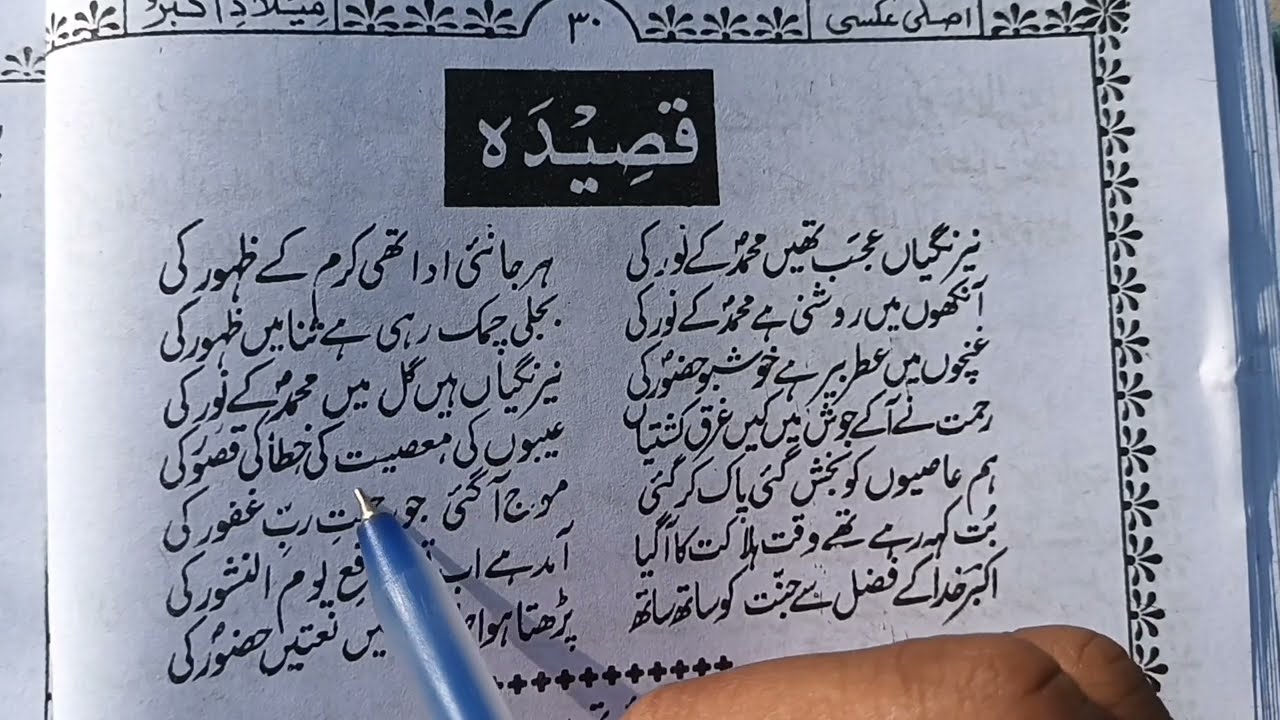 میلادِ اکبر
۳۰
اصلی عکسی
قصِیْدَہ
نیرنگیاں عجب تھیں محمدؐ کے نور کی ہر جانئی ادا تھی کرم کے ظہور کی
آنکھوں میں روشنی ہے محمدؐ کے نور کی بجلی چمک رہی ہے ثنا میں ظہور کی
غنچوں میں عطر بیر ہے خوشبو حضورؐ کی نیرنگیاں ہیں گل میں محمدؐ کے نور کی
رحمت نے آ کے جوش میں کیں غرق کشتیاں عیبوں کی معصیت کی خطا کی قصور کی
ہم عاصیوں کو بخش گئی پاک کر گئی موج آ گئی جو ربِّ غفور کی
بُت کہہ رہے تھے وقت ہلاکت کا آ گیا آمد ہے اب یوم النشور کی
اکبر خدا کے فضل سے جنّت کو ساتھ ساتھ پڑھتا ہوا نعتیں حضورؐ کی